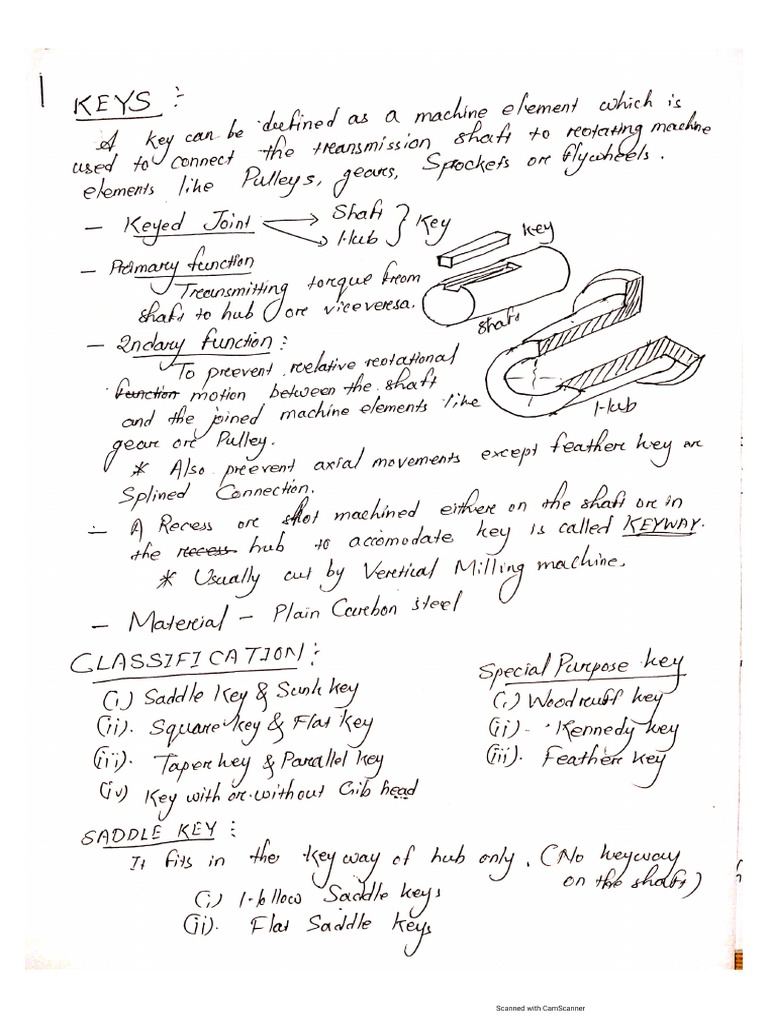 1
KEYS :-
A key can be defined as a machine element which is
used to connect the transmission shaft to rotating machine
elements like Pulleys, gears, Sprockets or flywheels.
- Keyed Joint → Shaft
→ Hub } Key
Key
Shaft
Hub
- Primary function
Transmitting torque from
shaft to hub or viceversa.
- 2ndary function :
To prevent relative rotational
function motion between the shaft
and the joined machine elements like
gear or Pulley.
* Also prevent axial movements except feather key or
Splined Connection.
- A Recess or slot machined either on the shaft or in
the recess hub to accomodate key is called KEYWAY.
* Usually cut by Vertical Milling machine.
- Material - Plain Carbon steel
CLASSIFICATION :-
(i) Saddle Key & Sunk key
(ii). Square key & Flat Key
(iii). Taper key & Parallel Key
(iv) Key with or without Gib head
Special Purpose key
(i) Woodruff key
(ii) - Kennedy key
(iii). Feather Key
SADDLE KEY :
It fits in the keyway of hub only. (No keyway
on the shaft)
(i) Hollow Saddle keys
(ii). Flat Saddle Keys
Scanned with CamScanner